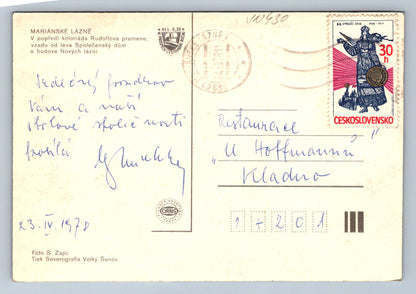 MARIÁNSKÉ LÁZNĚ
V popředí kolonáda Rudolfova pramene,
vzadu od leva Společenský dům
a budova Nových lázní
Kčs 0,80
30h
ČESKOSLOVENSKO
Srdečný pozdrav
Vám a naší
stolové společnosti
posílá
23. IV. 1978
Restaurace
„U Hoffmannů"
Kladno
272 01
Foto S. Zajíc
Tisk Severografia Velký Šenov